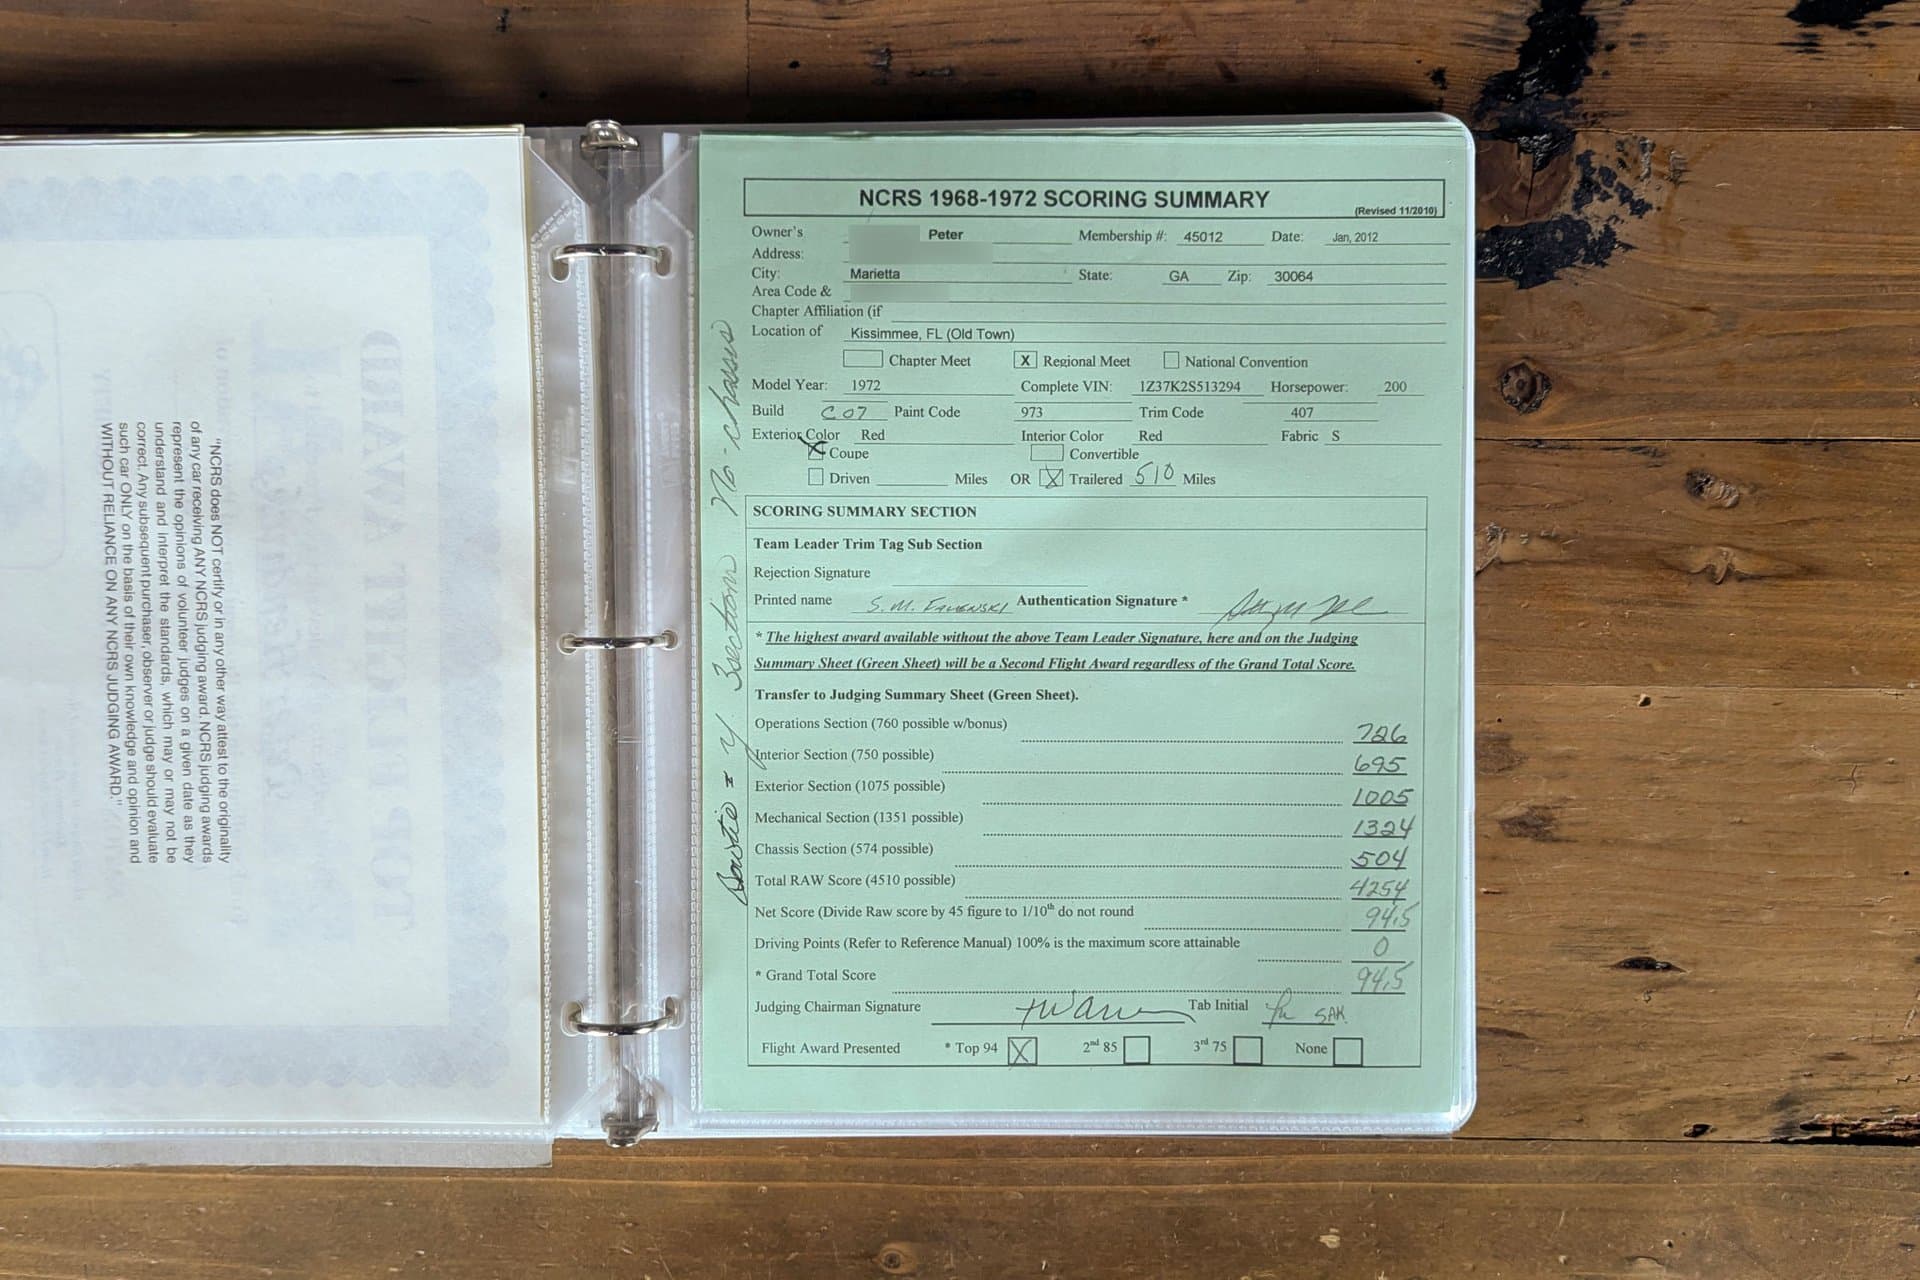 "NCRS does NOT certify or in any other way attest to the originality
of any car receiving ANY NCRS judging award. NCRS judging awards
represent the opinions of volunteer judges on a given date as they
understand and interpret the standards, which may or may not be
correct. Any subsequent purchaser, observer or judge should evaluate
such car ONLY on the basis of their own knowledge and opinion and
WITHOUT RELIANCE ON ANY NCRS JUDGING AWARD."
TOP FLIGHT AWARD
NCRS 1968-1972 SCORING SUMMARY
(Revised 11/2010)
Owner's Peter Membership #: 45012 Date: Jan, 2012
Address:
City: Marietta State: GA Zip: 30064
Area Code &
Chapter Affiliation (if
Location of Kissimmee, FL (Old Town)
Chapter Meet X Regional Meet National Convention
Model Year: 1972 Complete VIN: 1Z37K2S513294 Horsepower: 200
Build C07 Paint Code 973 Trim Code 407
Exterior Color Red Interior Color Red Fabric S
X Coupe Convertible
Driven Miles OR X Trailered 510 Miles
SCORING SUMMARY SECTION
Team Leader Trim Tag Sub Section
Rejection Signature
Printed name S. M. Authentication Signature *
* The highest award available without the above Team Leader Signature, here and on the Judging
Summary Sheet (Green Sheet) will be a Second Flight Award regardless of the Grand Total Score.
Transfer to Judging Summary Sheet (Green Sheet).
Operations Section (760 possible w/bonus) 726
Interior Section (750 possible) 695
Exterior Section (1075 possible) 1005
Mechanical Section (1351 possible) 1324
Chassis Section (574 possible) 504
Total RAW Score (4510 possible) 4254
Net Score (Divide Raw score by 45 figure to 1/10th do not round 94.5
Driving Points (Refer to Reference Manual) 100% is the maximum score attainable 0
* Grand Total Score 94.5
Judging Chairman Signature Tab Initial SAK
Flight Award Presented * Top 94 X 2nd 85 3rd 75 None
Bowtie = y 3section No-chassis